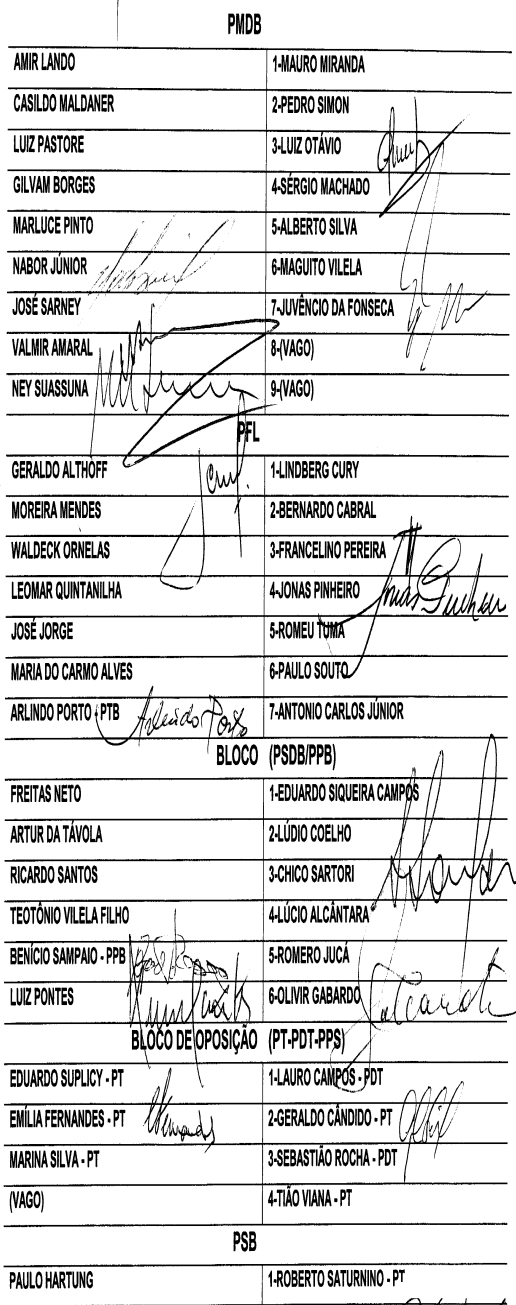 PMDB
AMIR LANDO 1-MAURO MIRANDA
CASILDO MALDANER 2-PEDRO SIMON
LUIZ PASTORE 3-LUIZ OTÁVIO
GILVAM BORGES 4-SÉRGIO MACHADO
MARLUCE PINTO 5-ALBERTO SILVA
NABOR JÚNIOR 6-MAGUITO VILELA
JOSÉ SARNEY 7-JUVÊNCIO DA FONSECA
VALMIR AMARAL 8-(VAGO)
NEY SUASSUNA 9-(VAGO)
PFL
GERALDO ALTHOFF 1-LINDBERG CURY
MOREIRA MENDES 2-BERNARDO CABRAL
WALDECK ORNELAS 3-FRANCELINO PEREIRA
LEOMAR QUINTANILHA 4-JONAS PINHEIRO Jonas Pinheiro
JOSÉ JORGE 5-ROMEU TUMA
MARIA DO CARMO ALVES 6-PAULO SOUTO
ARLINDO PORTO - PTB Arlindo Porto 7-ANTONIO CARLOS JÚNIOR
BLOCO (PSDB/PPB)
FREITAS NETO 1-EDUARDO SIQUEIRA CAMPOS
ARTUR DA TÁVOLA 2-LÚDIO COELHO
RICARDO SANTOS 3-CHICO SARTORI
TEOTÔNIO VILELA FILHO 4-LÚCIO ALCÂNTARA
BENÍCIO SAMPAIO - PPB 5-ROMERO JUCÁ
LUIZ PONTES 6-OLIVIR GABARDO
BLOCO DE OPOSIÇÃO (PT-PDT-PPS)
EDUARDO SUPLICY - PT 1-LAURO CAMPOS - PDT
EMÍLIA FERNANDES - PT 2-GERALDO CÂNDIDO - PT
MARINA SILVA - PT 3-SEBASTIÃO ROCHA - PDT
(VAGO) 4-TIÃO VIANA - PT
PSB
PAULO HARTUNG 1-ROBERTO SATURNINO - PT